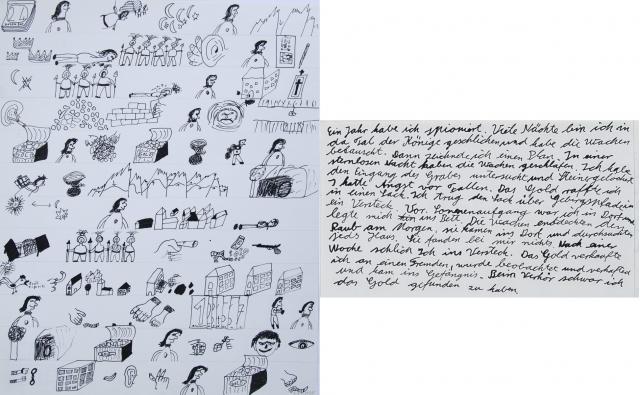 Ein Jahr habe ich spioniert. Viele Nächte bin ich in
das Tal der Könige geschlichen und habe die Wachen
belauscht. Dann zeichnete ich einen Plan. In einer
sternlosen Nacht haben die Wachen geschlafen. Ich habe
den Eingang des Grabes untersucht und Steine gelockert
Ich hatte Angst vor Fallen. Das Gold raffte ich
in einen Sack. Ich trug den Sack über Gebirgspfade in
ein Versteck. Vor Sonnenaufgang war ich im Dorf und
legte mich ins Bett. Die Wachen entdeckten den
Raub am Morgen, sie kamen ins Dorf und durchsuchten
jedes Haus. Sie fanden bei mir nichts. Nach einer
Woche schlich ich ins Versteck. Das Gold verkaufte
ich an einen Fremden, wurde beobachtet und verhaftet
und kam ins Gefängnis. Beim Verhör schwor ich
das Gold gefunden zu haben